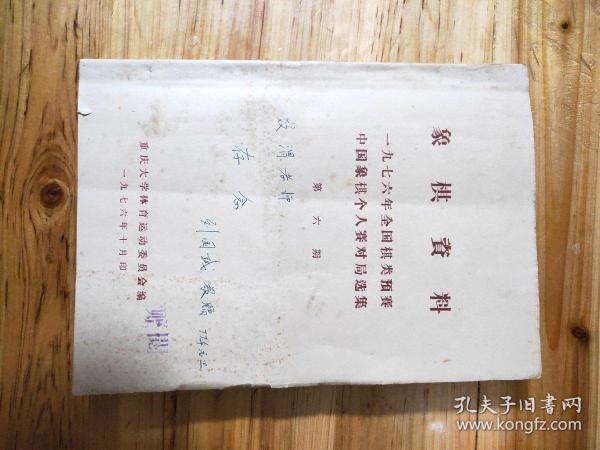 象棋資料
一九七六年全国棋类预赛
中国象棋个人赛对局选集
第六期
渭老师
存念
刘国成敬赠
重庆大学体育运动委员会编
一九七六年十月印
孔夫子旧书网
www.kongfz.com